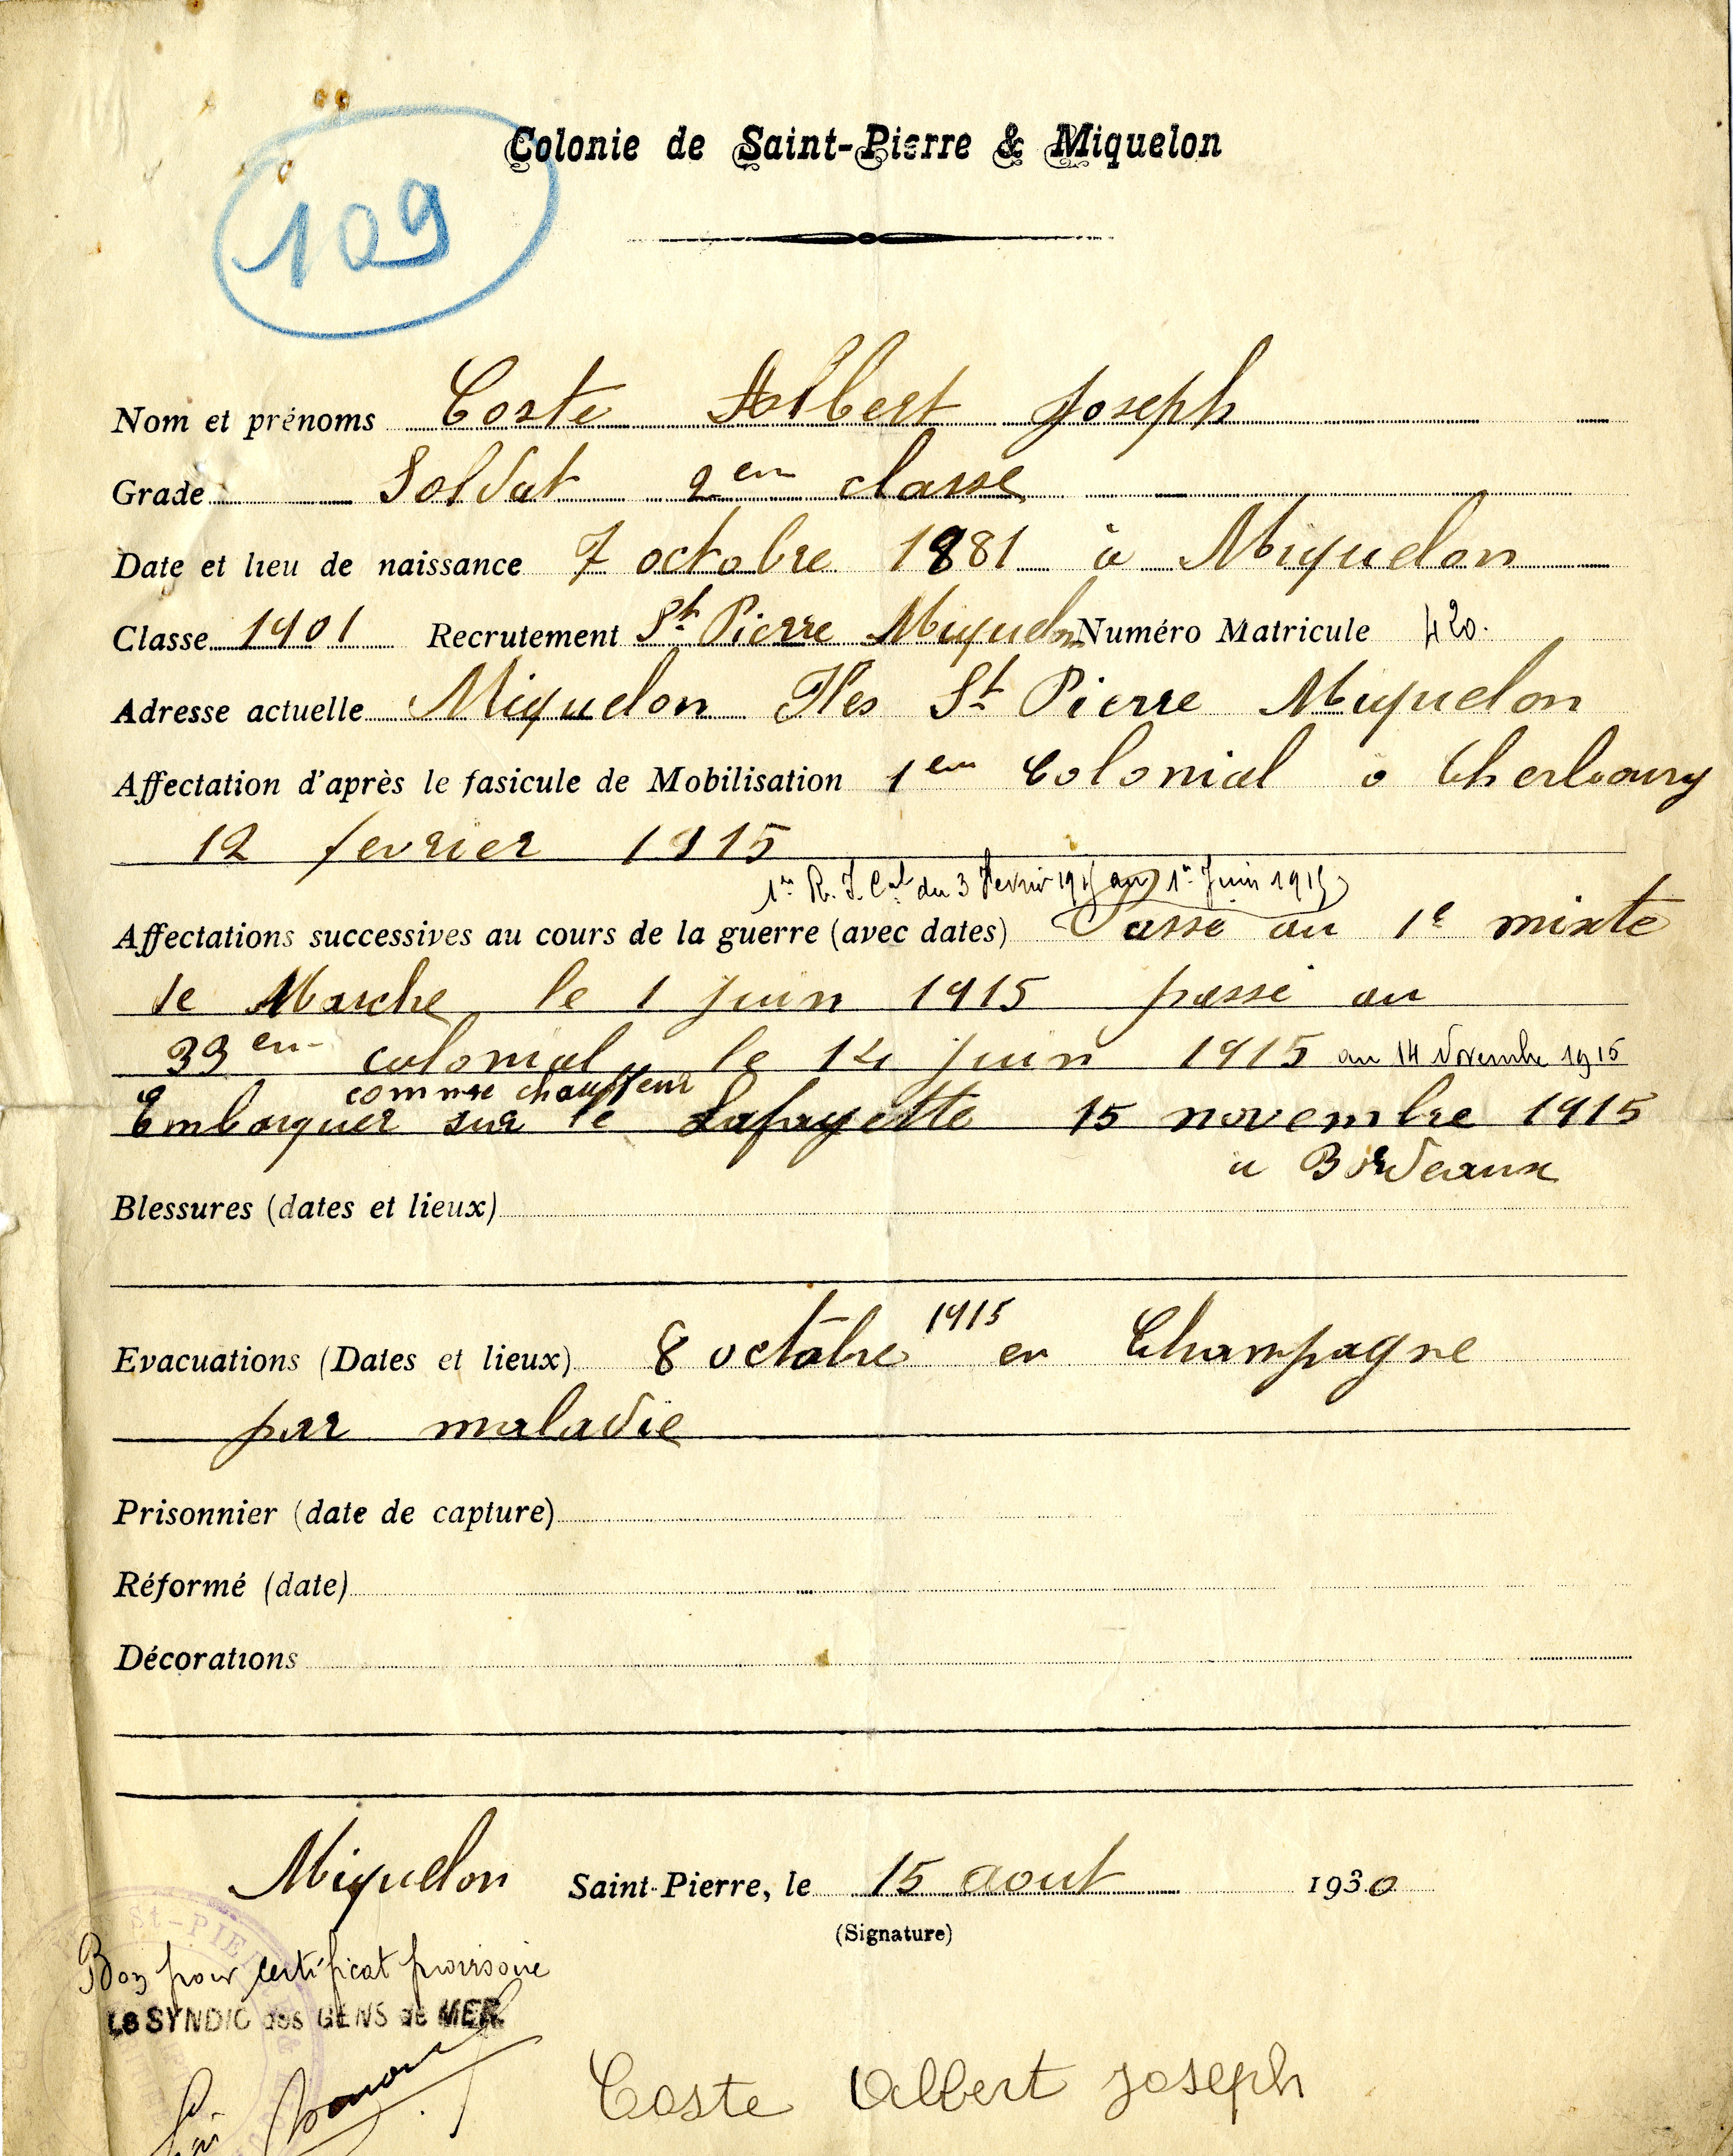 Colonie de Saint-Pierre & Miquelon
109
Nom et prénoms Coste Albert Joseph
Grade Soldat 2em classe
Date et lieu de naissance 7 octobre 1881 à Miquelon
Classe 1901 Recrutement St Pierre Miquelon Numéro Matricule 420.
Adresse actuelle Miquelon Iles St Pierre Miquelon
Affectation d'après le fasicule de Mobilisation 1em Colonial a Cherbourg
12 fevrier 1915
1er R. I. Cal du 3 Fevrier 1915 au 1er Juin 1915
Affectations successives au cours de la guerre (avec dates) Passé au 1e mixte
de Marche le 1 juin 1915 passé au
33em colonial le 14 juin 1915 au 14 Novembre 1915
comme chauffeur
Embarquer sur le Lafayette 15 novembre 1915
a Bordeaux
Blessures (dates et lieux)
Evacuations (Dates et lieux) 8 octobre 1915 en Champagne
par maladie
Prisonnier (date de capture)
Réformé (date)
Décorations
Miquelon Saint-Pierre, le 15 aout 1930
(Signature)
St-PIERRE
Bon pour certificat provisoire
Le SYNDIC des GENS de MER
Coste Albert Joseph